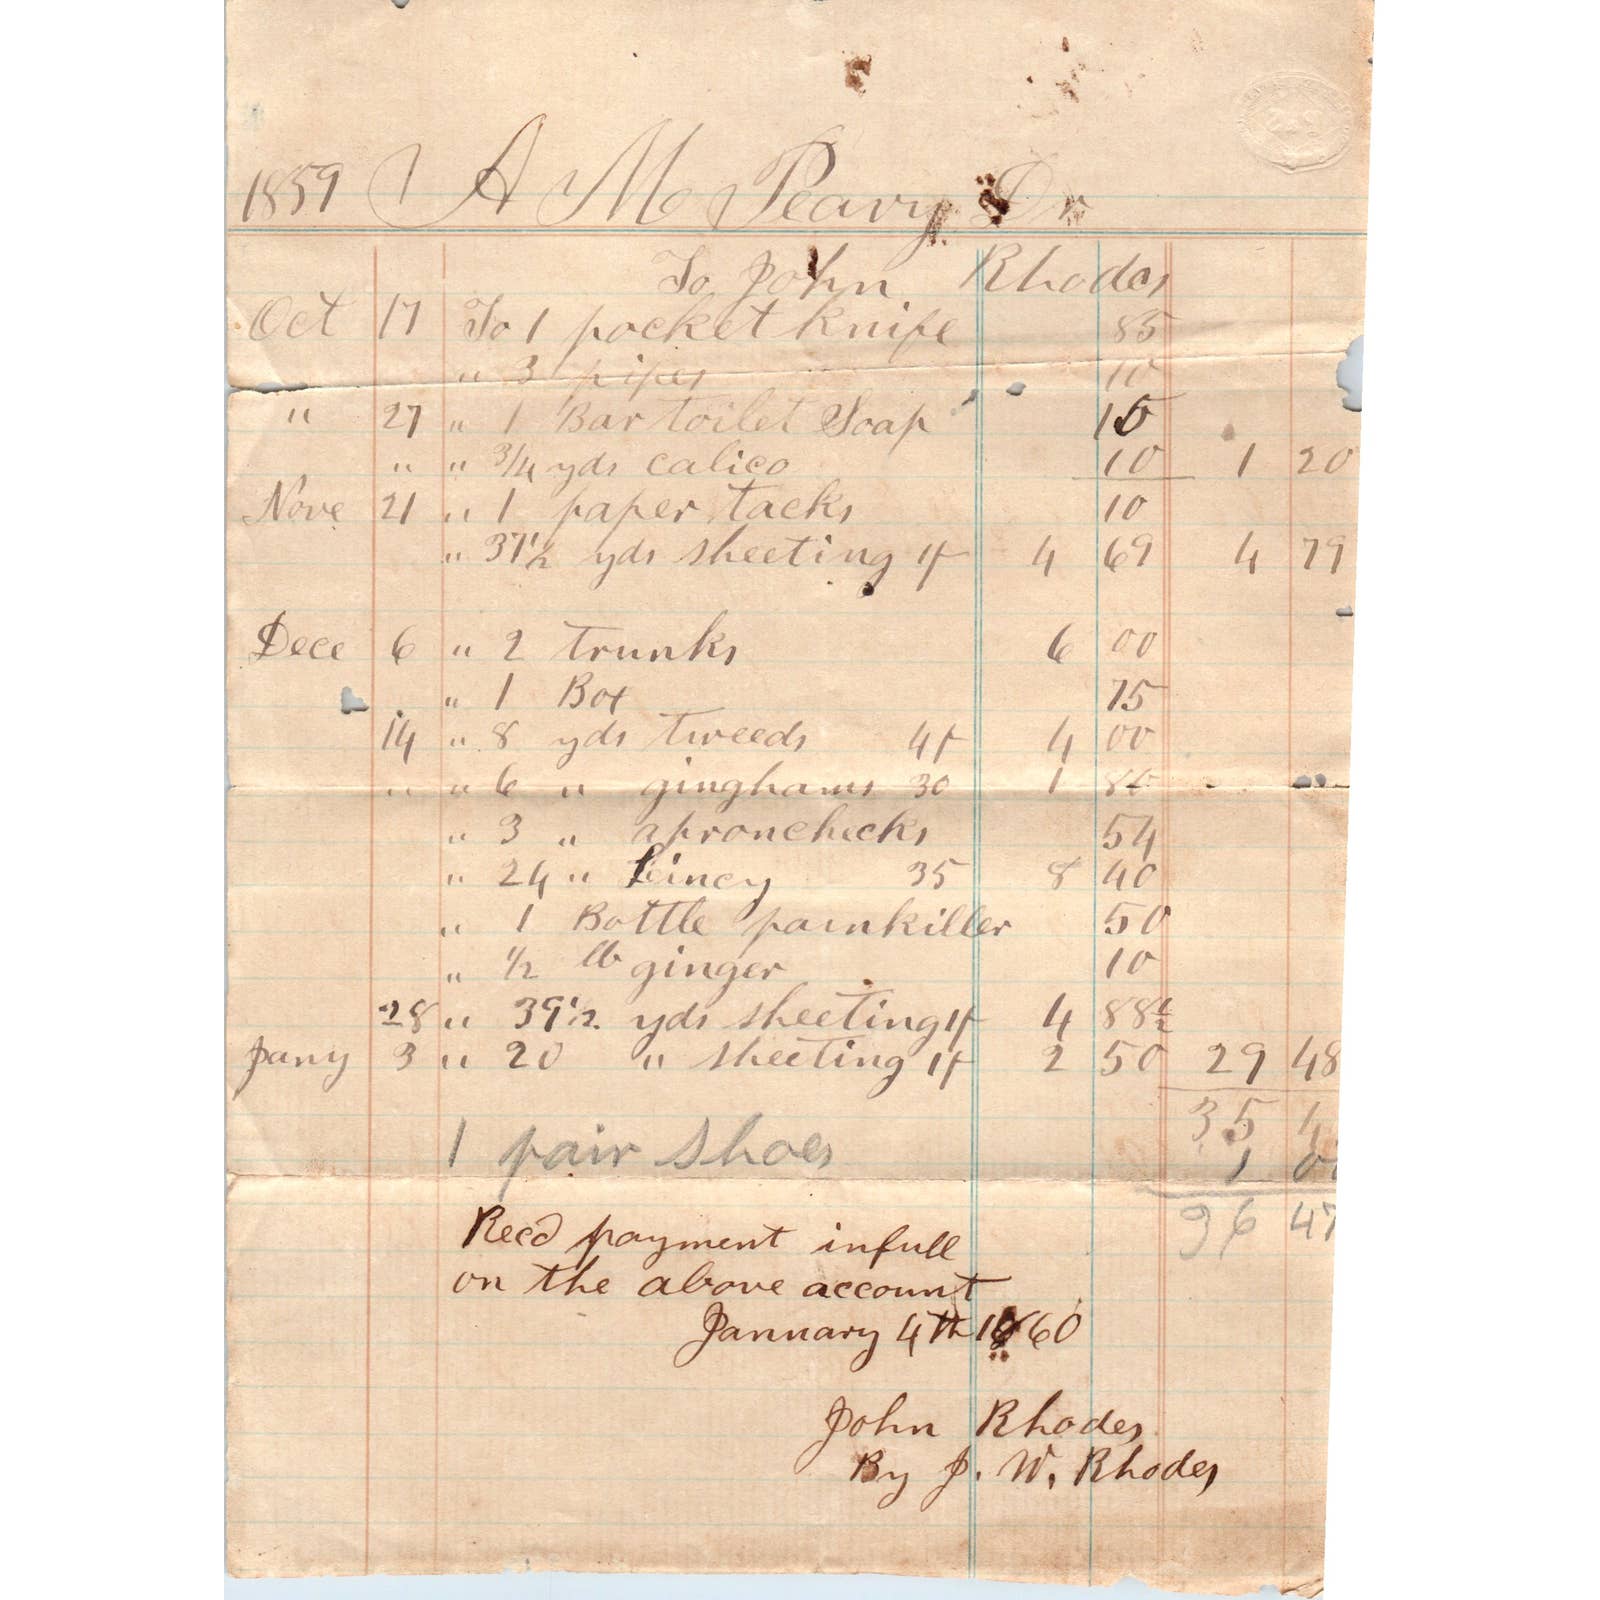 1859 A M Peavy Dr
To John Rhodes
Oct 17 To 1 pocket knife 85
" 3 pipes 10
" 27 " 1 Bar toilet Soap 15
" " 3/4 yds calico 10 1 20
Nove 21 " 1 paper tacks 10
" 37 1/2 yds sheeting 1/ 4 69 4 79
Dece 6 " 2 trunks 6 00
" 1 Box 75
14 " 8 yds tweeds 4/ 4 00
" " 6 " ginghams 30 1 80
" 3 " apronchecks 54
" 24 " Lincy 35 8 40
" 1 Bottle painkiller 50
" 1/2 lb ginger 10
28 " 39 1/2 yds sheeting 1/ 4 88
Jany 3 " 20 " sheeting 1/ 2 50 29 48
35 4
1 pair shoes 1 0
36 47
Recd payment infull
on the above account
January 4th 1860
John Rhodes
By J. W. Rhodes